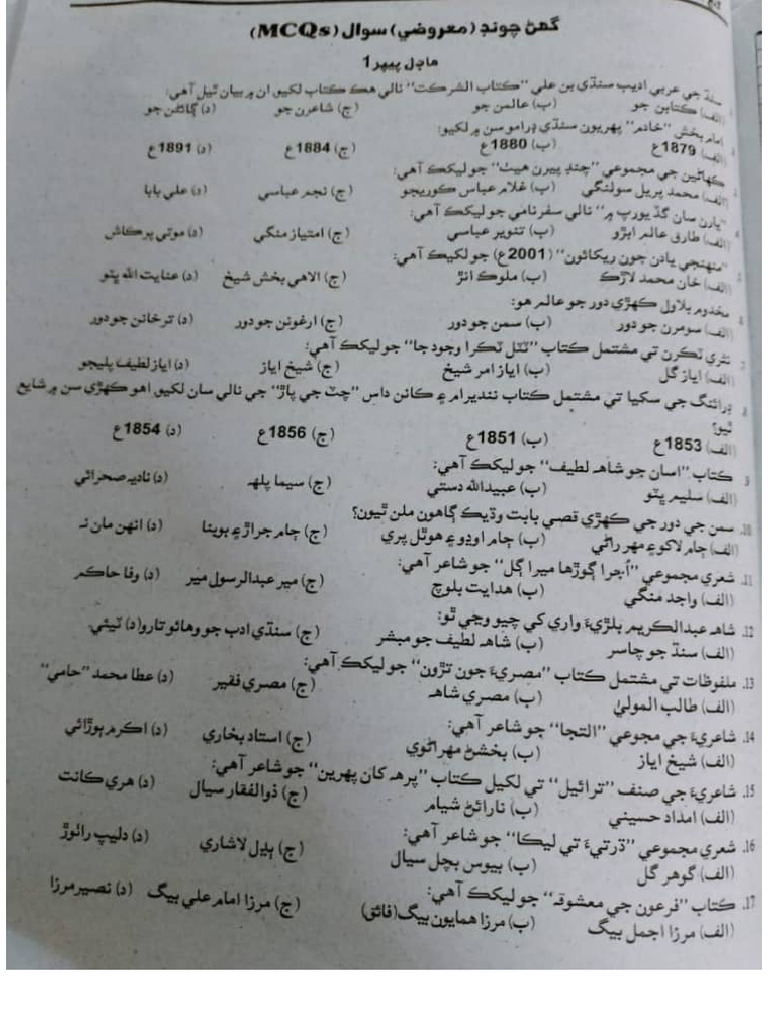 گهڻ چونڊ (معروضي) سوال (MCQs)
ماڊل پيپر 1
سنڌ جي عربي اديب سنڌي بن علي "ڪتاب الشرڪت" نالي هڪ ڪتاب لکيو ان ۾ بيان ٿيل آهي:
(الف) ڪتابن جو (ب) عالمن جو (ج) شاعرن جو (د) ڳائڻن جو
امام بخش "خادم" پهريون سنڌي ڊرامو سن ۾ لکيو:
(الف) 1879ع (ب) 1880ع (ج) 1884ع (د) 1891ع
ڪهاڻين جي مجموعي "چنڊ پيرن هيٺ" جو ليکڪ آهي:
(الف) محمد پريل سولنگي (ب) غلام عباس کوريجو (ج) نجم عباسي (د) علي بابا
"يارن سان گڏ يورپ ۾" نالي سفرنامي جو ليکڪ آهي:
(الف) طارق عالم ابڙو (ب) تنوير عباسي (ج) امتياز منگي (د) موتي پرڪاش
"منهنجي يادن جون ريکائون" (2001ع) جو ليکڪ آهي:
(الف) خان محمد لاڙڪ (ب) ملوڪ انڙ (ج) الاهي بخش شيخ (د) عنايت الله ڀٽو
مخدوم بلاول ڪهڙي دور جو عالم هو:
(الف) سومرن جو دور (ب) سمن جو دور (ج) ارغونن جو دور (د) ترخانن جو دور
نثري ٽڪرن تي مشتمل ڪتاب "ٽٽل ٽڪرا وجود جا" جو ليکڪ آهي:
(الف) اياز گل (ب) اياز امر شيخ (ج) شيخ اياز (د) اياز لطيف پليجو
ڊرائنگ جي سکيا تي مشتمل ڪتاب ننديرام ۽ ڪانن داس "چٽ جي پاڙ" جي نالي سان لکيو اهو ڪهڙي سن ۾ شايع
ٿيو؟
(الف) 1853ع (ب) 1851ع (ج) 1856ع (د) 1854ع
9. ڪتاب "اسان جو شاهه لطيف" جو ليکڪ آهي:
(الف) سليم ڀٽو (ب) عبيدالله دستي (ج) سيما پلهه (د) ناديه صحرائي
10. سمن جي دور جي ڪهڙي قصي بابت وڌيڪ ڳاهون ملن ٿيون؟
(الف) ڄام لاکو ۽ مهر راڻي (ب) ڄام اوڍو ۽ هوٿل پري (ج) ڄام جراڙ ۽ ٻوبنا (د) انهن مان نه
11. شعري مجموعي "اُجرا ڳوڙها ميرا ڳل" جو شاعر آهي:
(الف) واجد منگي (ب) هدايت بلوچ (ج) مير عبدالرسول مير (د) وفا حاڪم
12. شاهه عبدالڪريم بلڙيءَ واري کي چيو وڃي ٿو:
(الف) سنڌ جو چاسر (ب) شاهه لطيف جو مبشر (ج) سنڌي ادب جو وهائو تارو (د) ٽيئي.
13. ملفوظات تي مشتمل ڪتاب "مصريءَ جون تڙون" جو ليکڪ آهي:
(الف) طالب المولیٰ (ب) مصري شاهه (ج) مصري فقير (د) عطا محمد "حامي"
14. شاعريءَ جي مجموعي "التجا" جو شاعر آهي:
(الف) شيخ اياز (ب) بخشڻ مهراڻوي (ج) استاد بخاري (د) اڪرم ٻوڙائي
15. شاعريءَ جي صنف "ترائيل" تي لکيل ڪتاب "پرهه کان پهرين" جو شاعر آهي:
(الف) امداد حسيني (ب) نارائڻ شيام (ج) ذوالفقار سيال (د) هري ڪانت
16. شعري مجموعي "ڌرتيءَ تي ليڪا" جو شاعر آهي:
(الف) گوهر گل (ب) بيوس بچل سيال (ج) ٻڍل لاشاري (د) دليپ راٺوڙ
17. ڪتاب "فرعون جي معشوقہ" جو ليکڪ آهي:
(الف) مرزا اجمل بيگ (ب) مرزا همايون بيگ (فائق) (ج) مرزا امام علي بيگ (د) نصير مرزا